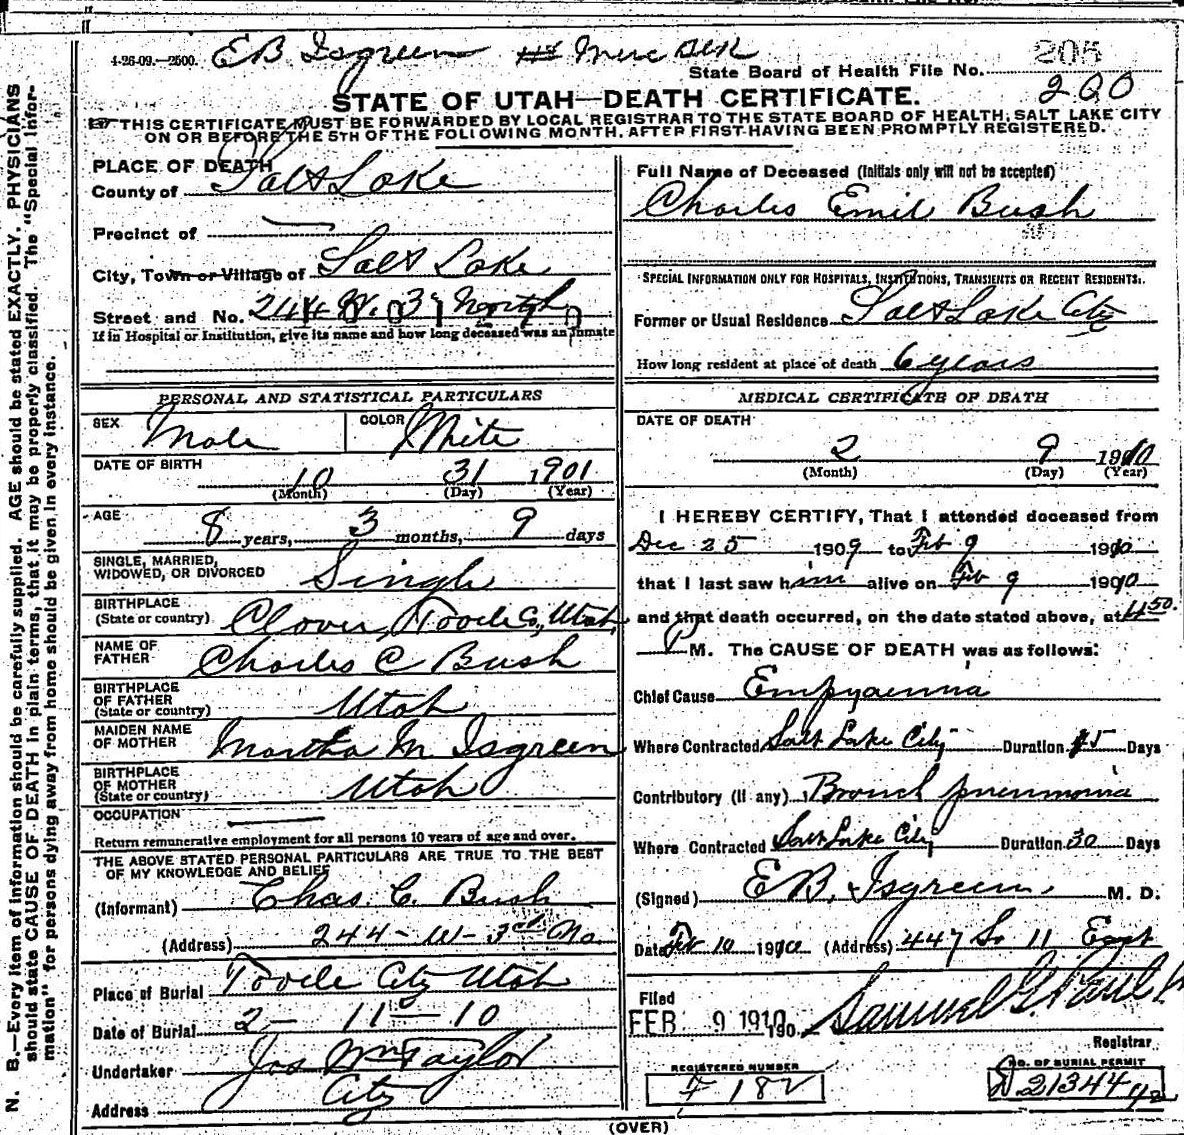 4-26-09.—2500. E B. Isgreen
State Board of Health File No. 205
200
STATE OF UTAH—DEATH CERTIFICATE.
THIS CERTIFICATE MUST BE FORWARDED BY LOCAL REGISTRAR TO THE STATE BOARD OF HEALTH, SALT LAKE CITY
ON OR BEFORE THE 5TH OF THE FOLLOWING MONTH. AFTER FIRST HAVING BEEN PROMPTLY REGISTERED.
PLACE OF DEATH
County of Salt Lake
Precinct of
City, Town or Village of Salt Lake
Street and No. 244 W. 3 North
If in Hospital or Institution, give its name and how long deceased was an inmate
PERSONAL AND STATISTICAL PARTICULARS
SEX Male COLOR White
DATE OF BIRTH
10 31 1901
(Month) (Day) (Year)
AGE
8 years, 3 months, 9 days
SINGLE, MARRIED,
WIDOWED, OR DIVORCED Single
BIRTHPLACE
(State or country) Clover, Tooele Co, Utah
NAME OF
FATHER Charles C Bush
BIRTHPLACE
OF FATHER
(State or country) Utah
MAIDEN NAME
OF MOTHER Martha M Isgreen
BIRTHPLACE
OF MOTHER
(State or country) Utah
OCCUPATION
Return remunerative employment for all persons 10 years of age and over.
THE ABOVE STATED PERSONAL PARTICULARS ARE TRUE TO THE BEST
OF MY KNOWLEDGE AND BELIEF
(Informant) Chas. C. Bush
(Address) 244 - W - 3rd No.
Place of Burial Tooele City Utah
Date of Burial 2 - 11 - 10
Undertaker Jos Wm Taylor
Address City
Full Name of Deceased (Initials only will not be accepted)
Charles Emil Bush
SPECIAL INFORMATION ONLY FOR HOSPITALS, INSTITUTIONS, TRANSIENTS OR RECENT RESIDENTS.
Former or Usual Residence Salt Lake City
How long resident at place of death 6 years
MEDICAL CERTIFICATE OF DEATH
DATE OF DEATH
2 9 1910
(Month) (Day) (Year)
I HEREBY CERTIFY, That I attended deceased from
Dec 25 1909 to Feb 9 1910
that I last saw him alive on Feb 9 1910
and that death occurred, on the date stated above, at 4:50.
P M. The CAUSE OF DEATH was as follows:
Chief Cause Empyaemia
Where Contracted Salt Lake City Duration 15 Days
Contributory (if any) Bronch pneumonia
Where Contracted Salt Lake City Duration 30 Days
(Signed) E B. Isgreen M. D.
Date Feb 10 1910 (Address) 447 So 11 East
Filed
FEB 9 1910 190 Samuel G. Paul
Registrar
REGISTERED NUMBER
F 182
NO. OF BURIAL PERMIT
D 21344
(OVER)
N. B.—Every item of information should be carefully supplied. AGE should be stated EXACTLY. PHYSICIANS
should state CAUSE OF DEATH in plain terms, that it may be properly classified. The "Special Infor-
mation" for persons dying away from home should be given in every instance.